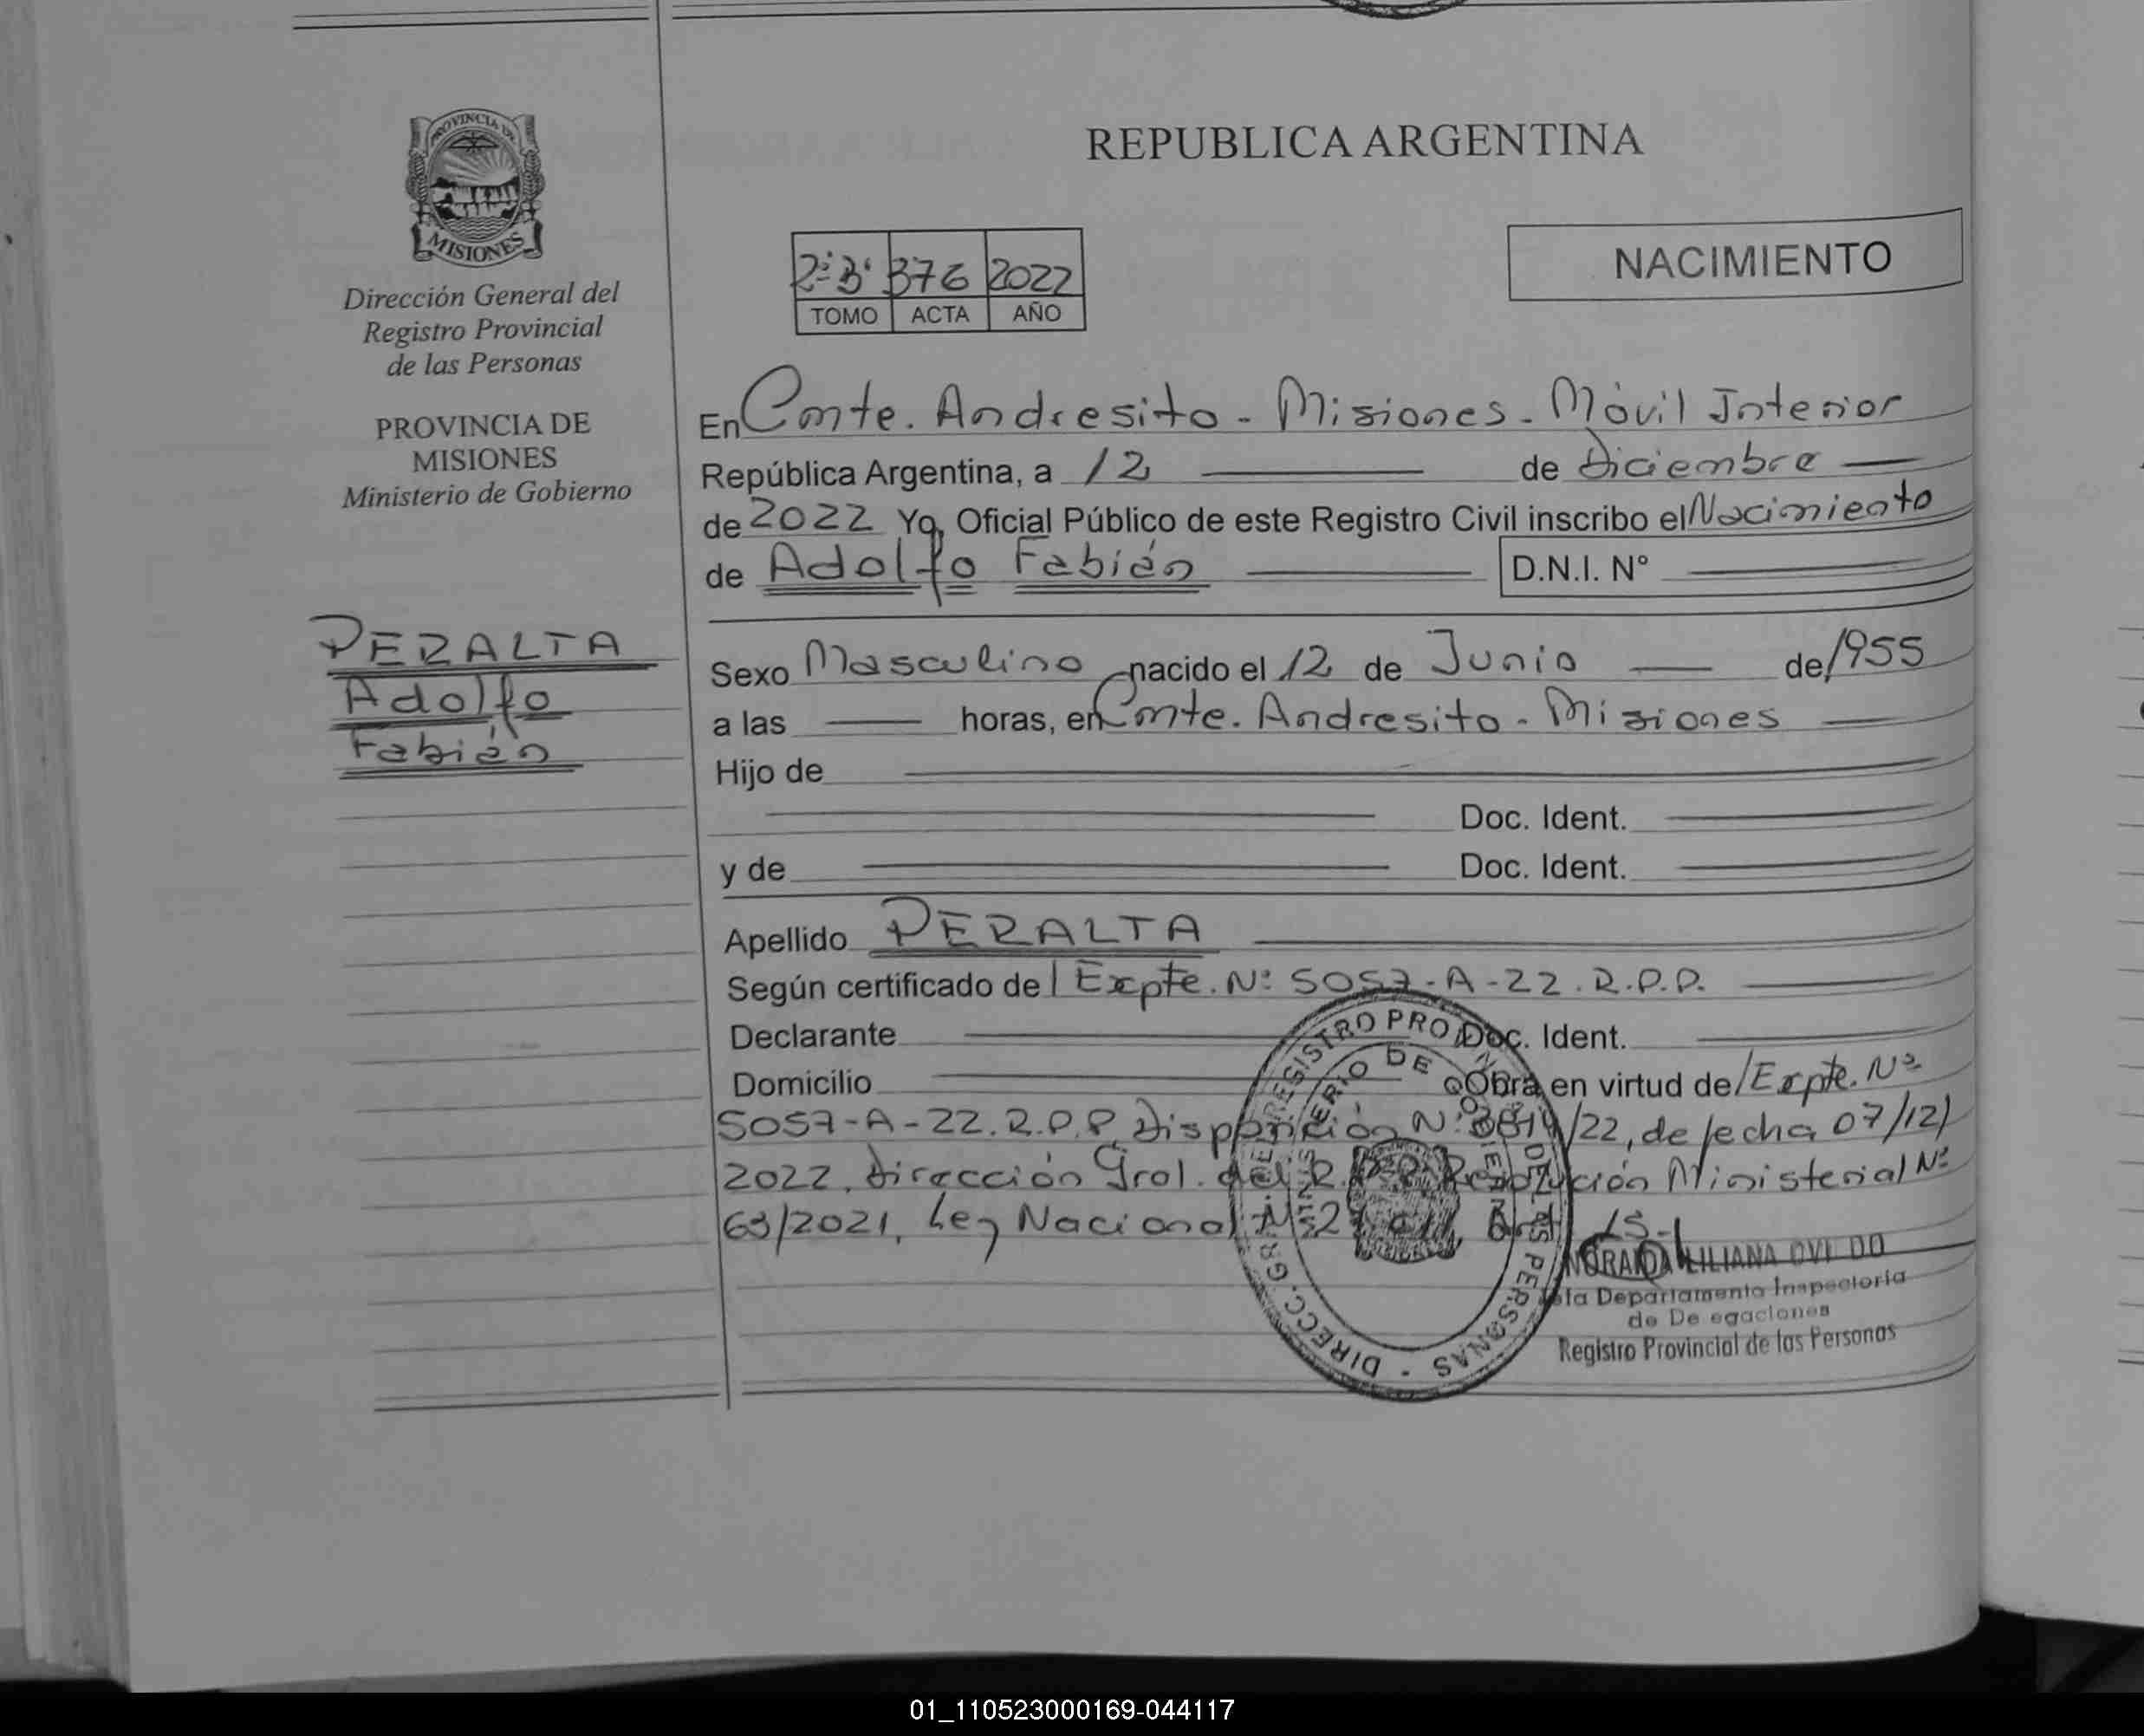 PROVINCIA DE
MISIONES
Dirección General del
Registro Provincial
de las Personas
PROVINCIA DE
MISIONES
Ministerio de Gobierno
PERALTA
Adolfo
Fabián
REPUBLICA ARGENTINA
NACIMIENTO
376 2022
TOMO ACTA AÑO
En Cmte. Andresito - Misiones - Móvil Interior
República Argentina, a 12 de Diciembre
de 2022 Yo, Oficial Público de este Registro Civil inscribo el Nacimiento
de Adolfo Fabián D.N.I. N°
Sexo Masculino nacido el 12 de Junio de 1955
a las horas, en Cmte. Andresito - Misiones
Hijo de
Doc. Ident.
y de Doc. Ident.
Apellido PERALTA
Según certificado de Expte. Nº 5057-A-22. R.P.P.
Declarante Doc. Ident.
Domicilio Obra en virtud de Expte. Nº
5057-A-22. R.P.P. Disposición /22, de fecha 07/12/
2022, Dirección Gral. del Resolución Ministerial Nº
63/2021, Ley Nacional 15.-
DIRECC. GRAL. DEL REGISTRO PROVINCIAL DE LAS PERSONAS
MINISTERIO DE GOBIERNO
LILIANA
Departamento Inspectoría
de Delegaciones
Registro Provincial de las Personas
01_110523000169-044117